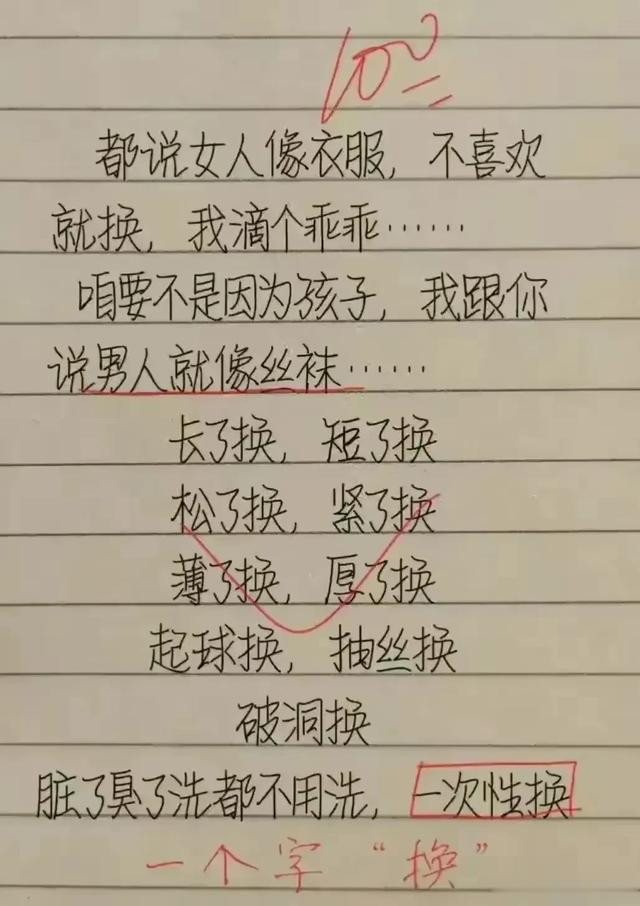 100
都说女人像衣服，不喜欢
就换，我滴个乖乖……
咱要不是因为孩子，我跟你
说男人就像丝袜……
长了换，短了换
松了换，紧了换
薄了换，厚了换
起球换，抽丝换
破洞换
脏了臭了洗都不用洗，一次性换
一个字“换”